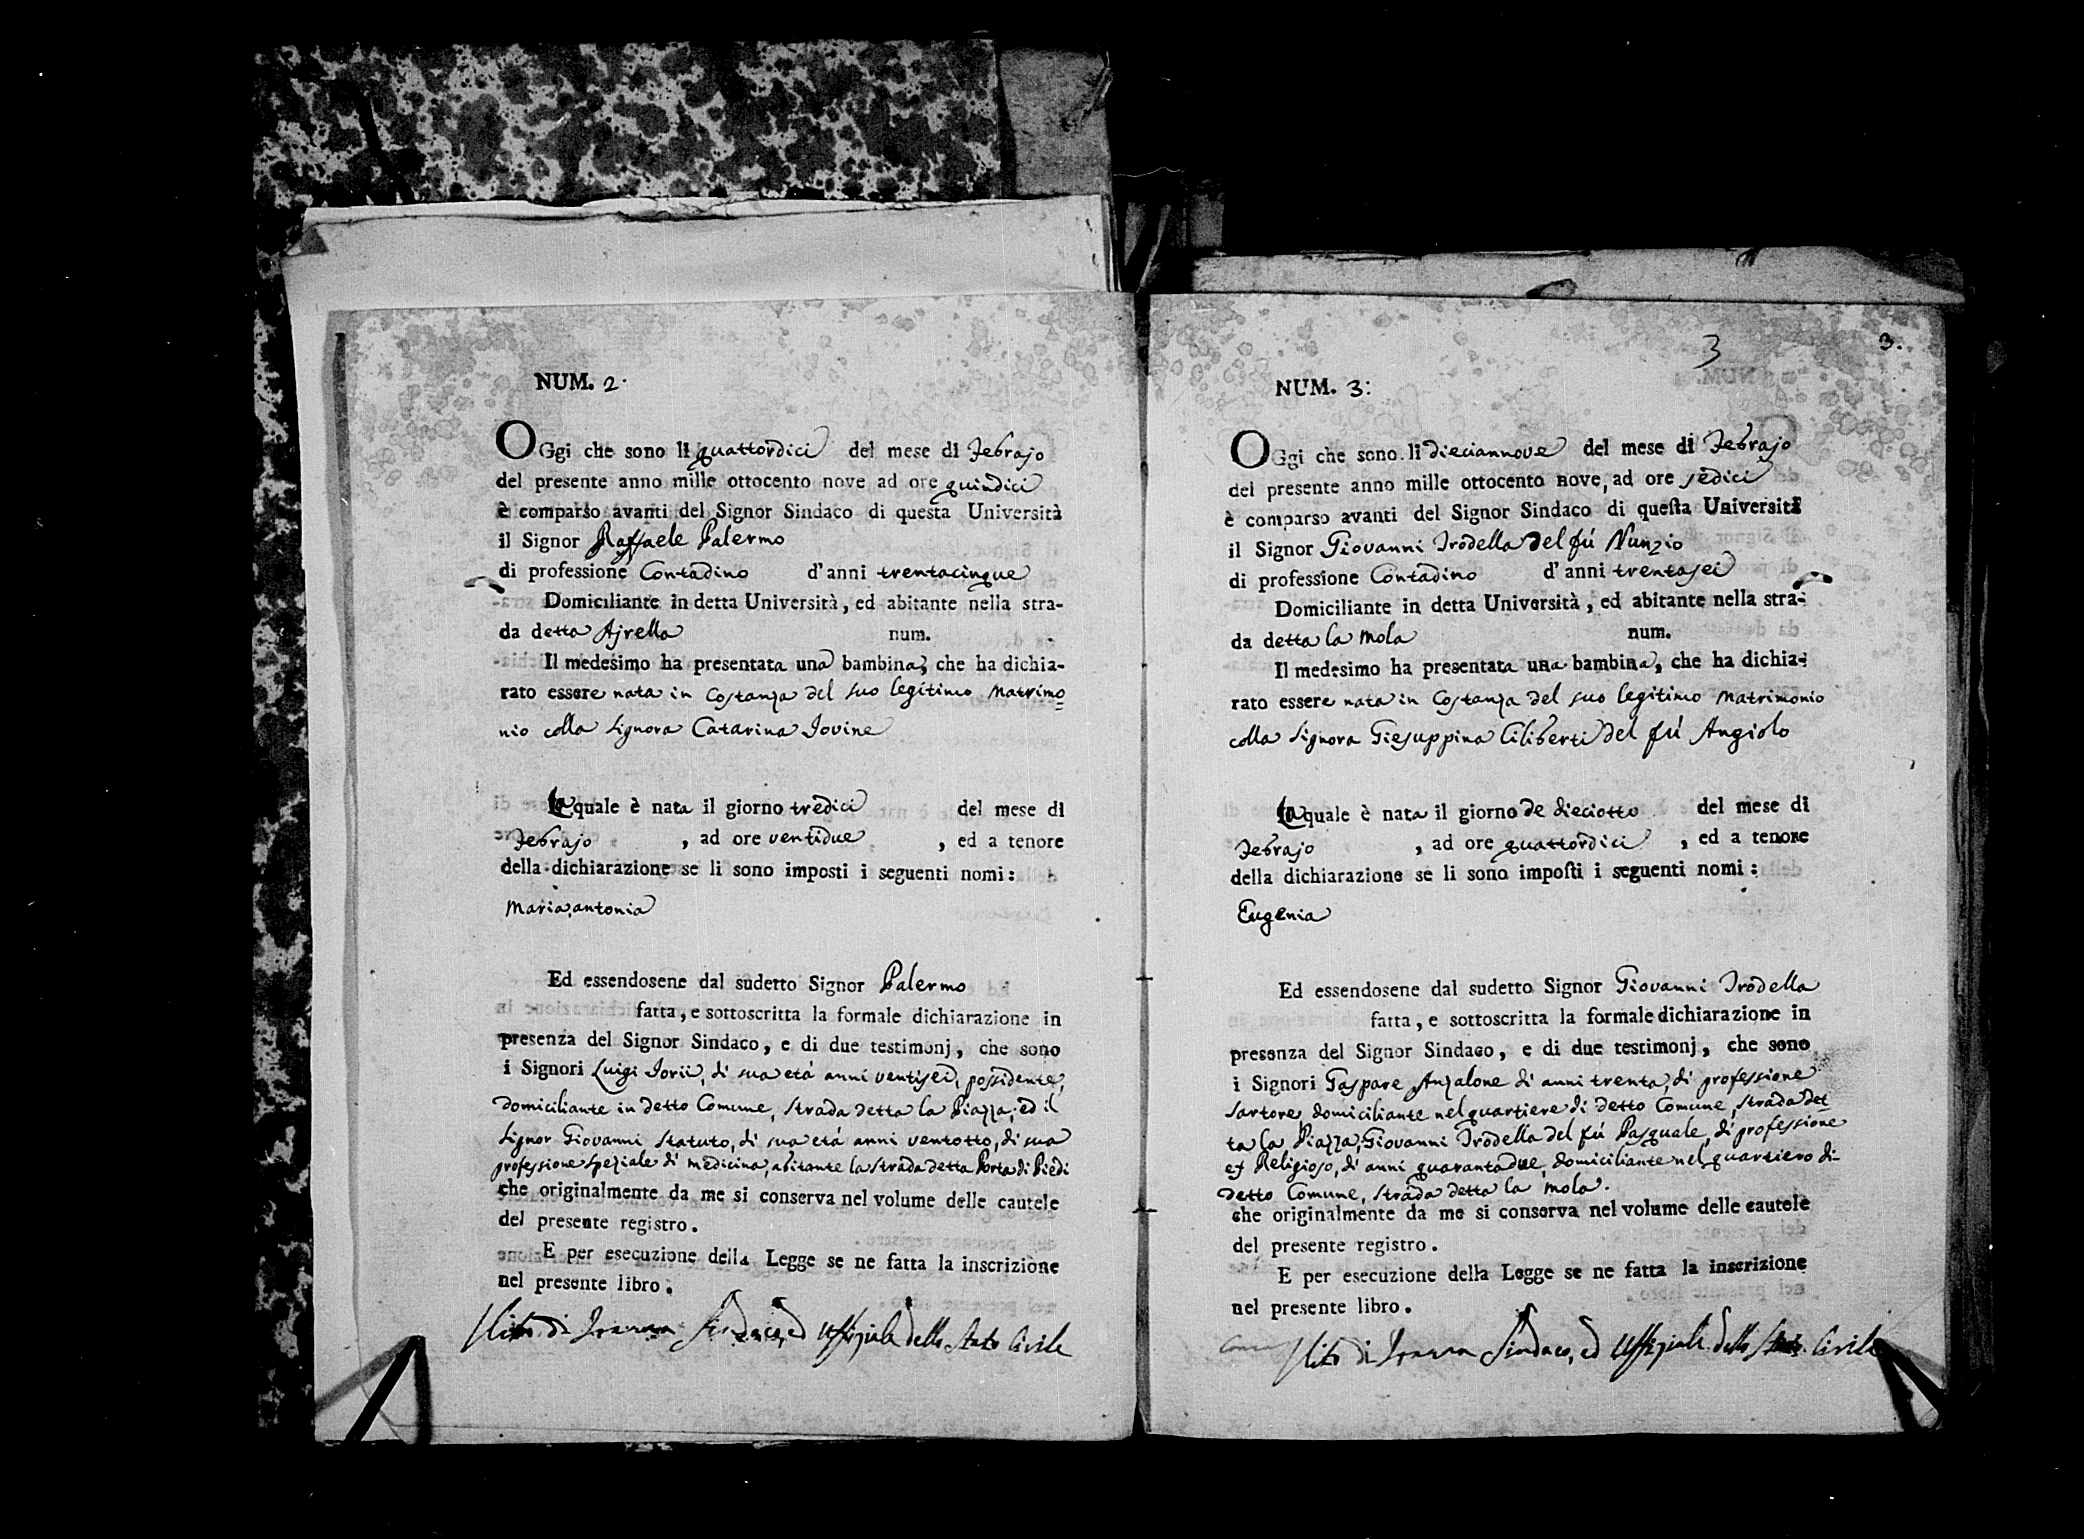 NUM. 2.
OGgi che sono li quattordici del mese di Febrajo
del presente anno mille ottocento nove ad ore quindici
è comparso avanti del Signor Sindaco di questa Università
il Signor Raffaele Palermo
di professione Contadino d'anni trentacinque
Domiciliante in detta Università, ed abitante nella stra-
da detta Ajrella num.
Il medesimo ha presentata una bambina, che ha dichia-
rato essere nata in Costanza del suo legitimo Matrimo
nio colla Signora Catarina Iovine
La quale è nata il giorno tredici del mese di
Febrajo, ad ore ventidue, ed a tenore
della dichiarazione se li sono imposti i seguenti nomi:
Maria antonia
Ed essendosene dal sudetto Signor Palermo
fatta, e sottoscritta la formale dichiarazione in
presenza del Signor Sindaco, e di due testimonj, che sono
i Signori Luigi Iorii, di sua età anni ventisei, possidente,
domiciliante in detto Comune, strada detta la Piazza. ed il
Signor Giovanni Statuto, di sua età anni ventotto, di sua
professione speziale di medicina, abitante la strada detta Porta di Piedi
che originalmente da me si conserva nel volume delle cautele
del presente registro.
E per esecuzione della Legge se ne fatta la inscrizione
nel presente libro.
di Sindaco, ed Uffiziale dello Stato Civile
3 3.
NUM. 3:
OGgi che sono li dieciannove del mese di Febrajo
del presente anno mille ottocento nove, ad ore sedici
è comparso avanti del Signor Sindaco di questa Università
il Signor Giovanni Trodella del fú Nunzio
di professione Contadino d'anni trentasei
Domiciliante in detta Università, ed abitante nella stra-
da detta la Mola num.
Il medesimo ha presentata una bambina, che ha dichia-
rato essere nata in Costanza del suo legitimo Matrimonio
colla Signora Giesuppina Ciliberti del fú Angiolo
La quale è nata il giorno de dieciotto del mese di
Febrajo, ad ore quattordici, ed a tenore
della dichiarazione se li sono imposti i seguenti nomi:
Eugenia
Ed essendosene dal sudetto Signor Giovanni Trodella
fatta, e sottoscritta la formale dichiarazione in
presenza del Signor Sindaco, e di due testimonj, che sono
i Signori Gaspare Anzalone di anni trenta, di professione
Sartore, domiciliante nel quartiere di detto Comune, strada det
ta la Piazza, Giovanni Trodella del fú Pasquale, di professione
ex Religioso, di anni quarantadue, domiciliante nel quartiero di
detto Comune, strada detta la Mola.
che originalmente da me si conserva nel volume delle cautele
del presente registro.
E per esecuzione della Legge se ne fatta la inscrizione
nel presente libro.
di Sindaco, ed Uffiziale dello Stato Civile